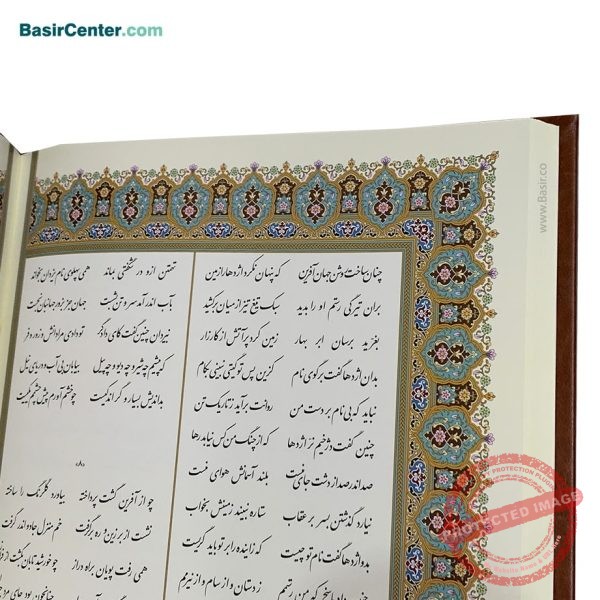 BasirCenter.com
www.Basir.co
چنان ساخت روشن جهان آفرین که پنهان نکرد اژدها را زمین
بران تیرگی رستم او را بدید سبک تیغ تیز از میان برکشید
بغرید برسان ابر بهار زمین کرد پر آتش از کارزار
بدان اژدها گفت برگوی نام کزین پس تو گیتی نبینی بکام
نباید که بی نام بر دست من روانت برآید ز تاریک تن
چنین گفت دژخیم نر اژدها که از چنگ من کس نیابد رها
صد اندر صد از دشت جای منست بلند آسمانش هوای منست
نیارد گذشتن بسر بر عقاب ستاره نبیند زمینش بخواب
بدو اژدها گفت نام تو چیست که زاینده را بر تو باید گریست
چنین داد پاسخ که من رستمم ز دستان و از سام و از نیرمم
تهمتن ازو در شگفتی بماند همی پهلوی نام یزدان بخواند
بآب اندر آمد سر و تن بشست جهان جز بزور جهانبان نجست
بیزدان چنین گفت کای دادگر تو دادی مرا دانش و زور و فر
که پیشم چه شیر و چه دیو و چه پیل بیابان بی آب و دریای نیل
بداندیش بسیار و گر اندکیست چو خشم آورم پیش چشمم یکیست
چو از آفرین گشت پرداخته بیاورد گلرنگ را ساخته
نشست از بر زین و ره برگرفت خم منزل جادو اندر گرفت
همی رفت پویان براه دراز چو خورشید تابان بگشت از فراز
PROTECTED IMAGE